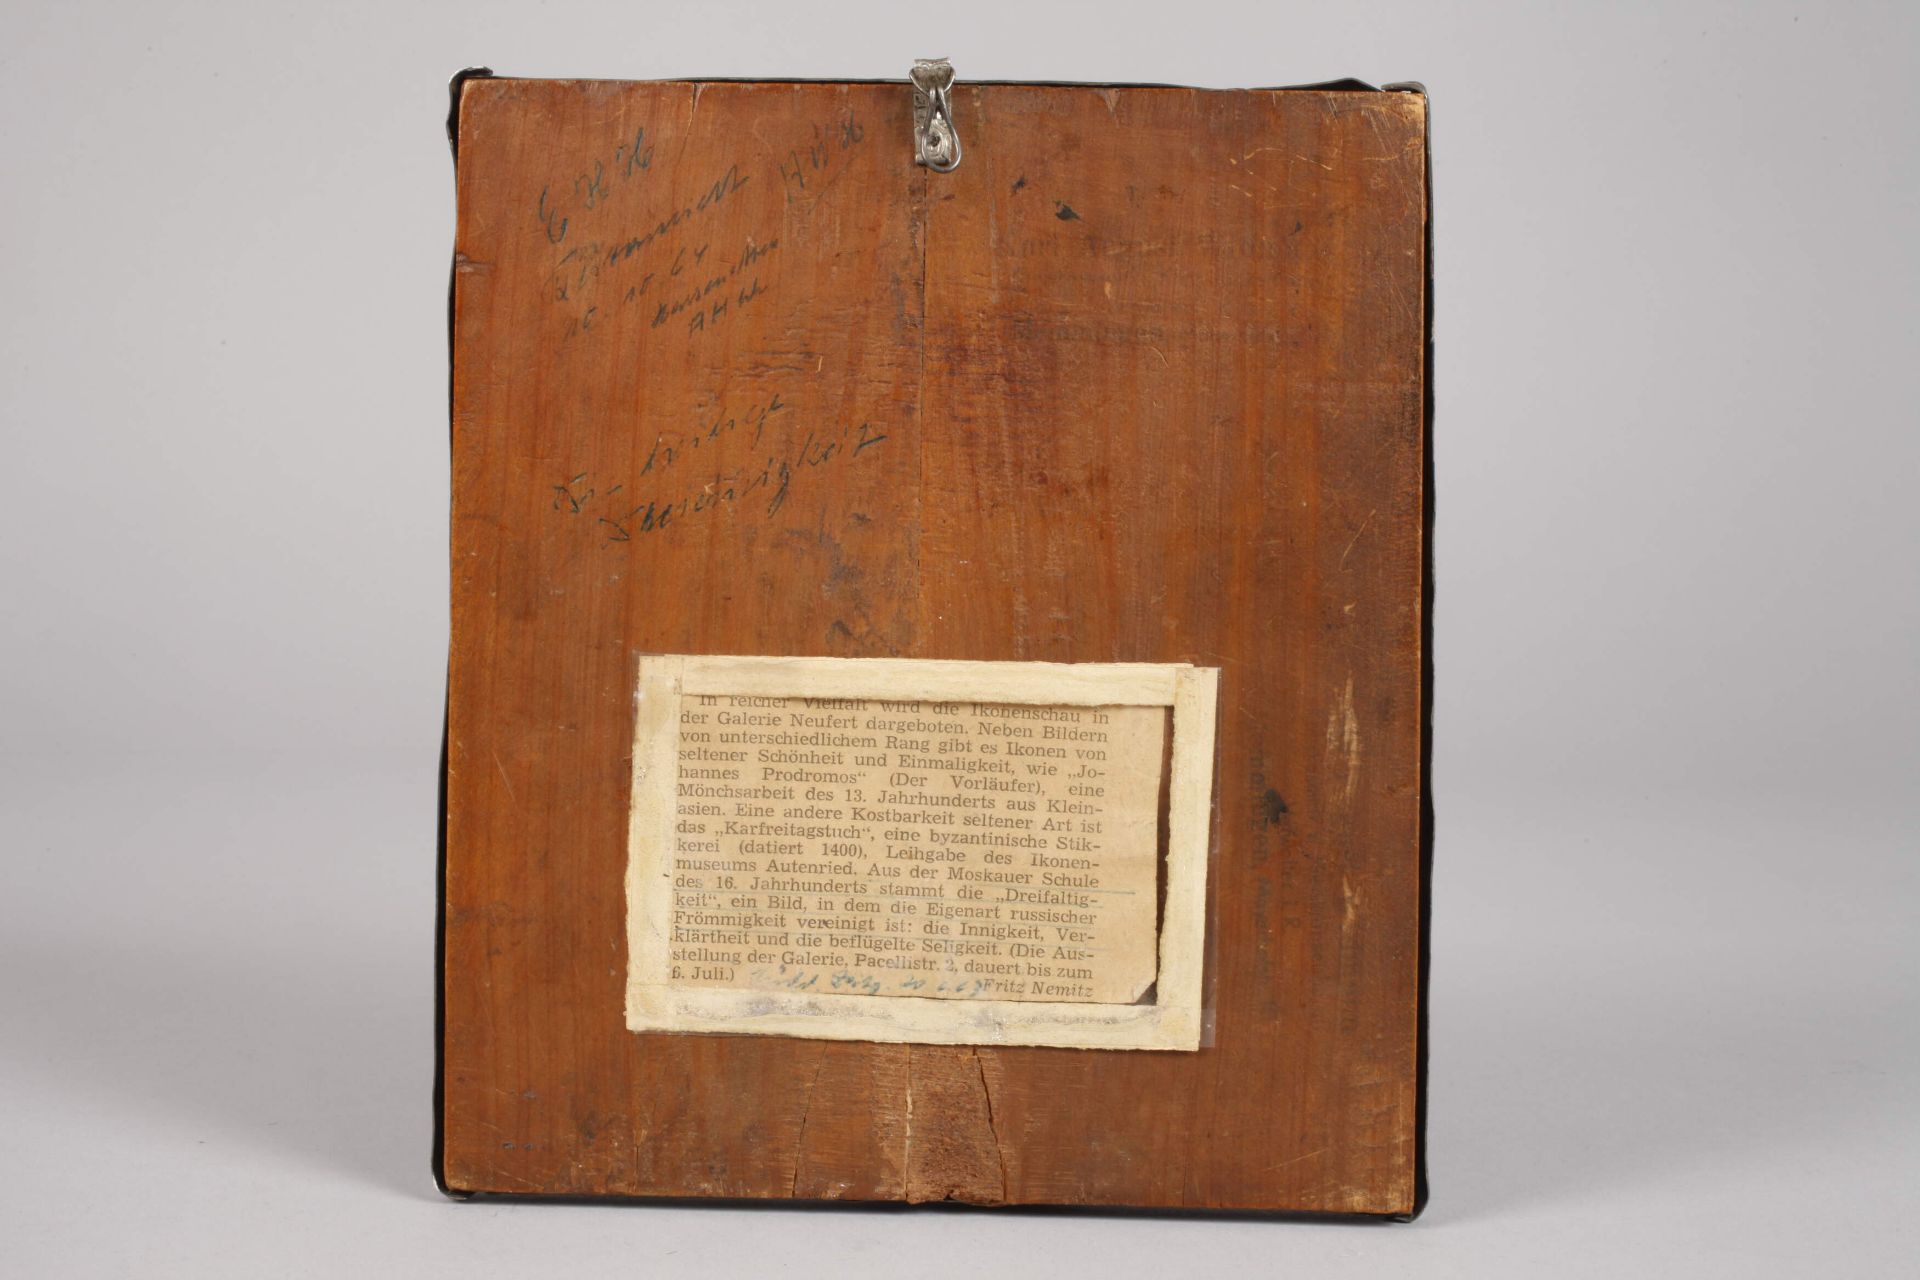 E H H
AWH
10.10.64
AH
Die heilige
Dreieinigkeit
In reicher Vielfalt wird die Ikonenschau in
der Galerie Neufert dargeboten. Neben Bildern
von unterschiedlichem Rang gibt es Ikonen von
seltener Schönheit und Einmaligkeit, wie „Jo-
hannes Prodromos“ (Der Vorläufer), eine
Mönchsarbeit des 13. Jahrhunderts aus Klein-
asien. Eine andere Kostbarkeit seltener Art ist
das „Karfreitagstuch“, eine byzantinische Stik-
kerei (datiert 1400), Leihgabe des Ikonen-
museums Autenried. Aus der Moskauer Schule
des 16. Jahrhunderts stammt die „Dreifaltig-
keit“, ein Bild, in dem die Eigenart russischer
Frömmigkeit vereinigt ist: die Innigkeit, Ver-
klärtheit und die beflügelte Seligkeit. (Die Aus-
stellung der Galerie, Pacellistr. 2, dauert bis zum
6. Juli.) Fritz Nemitz